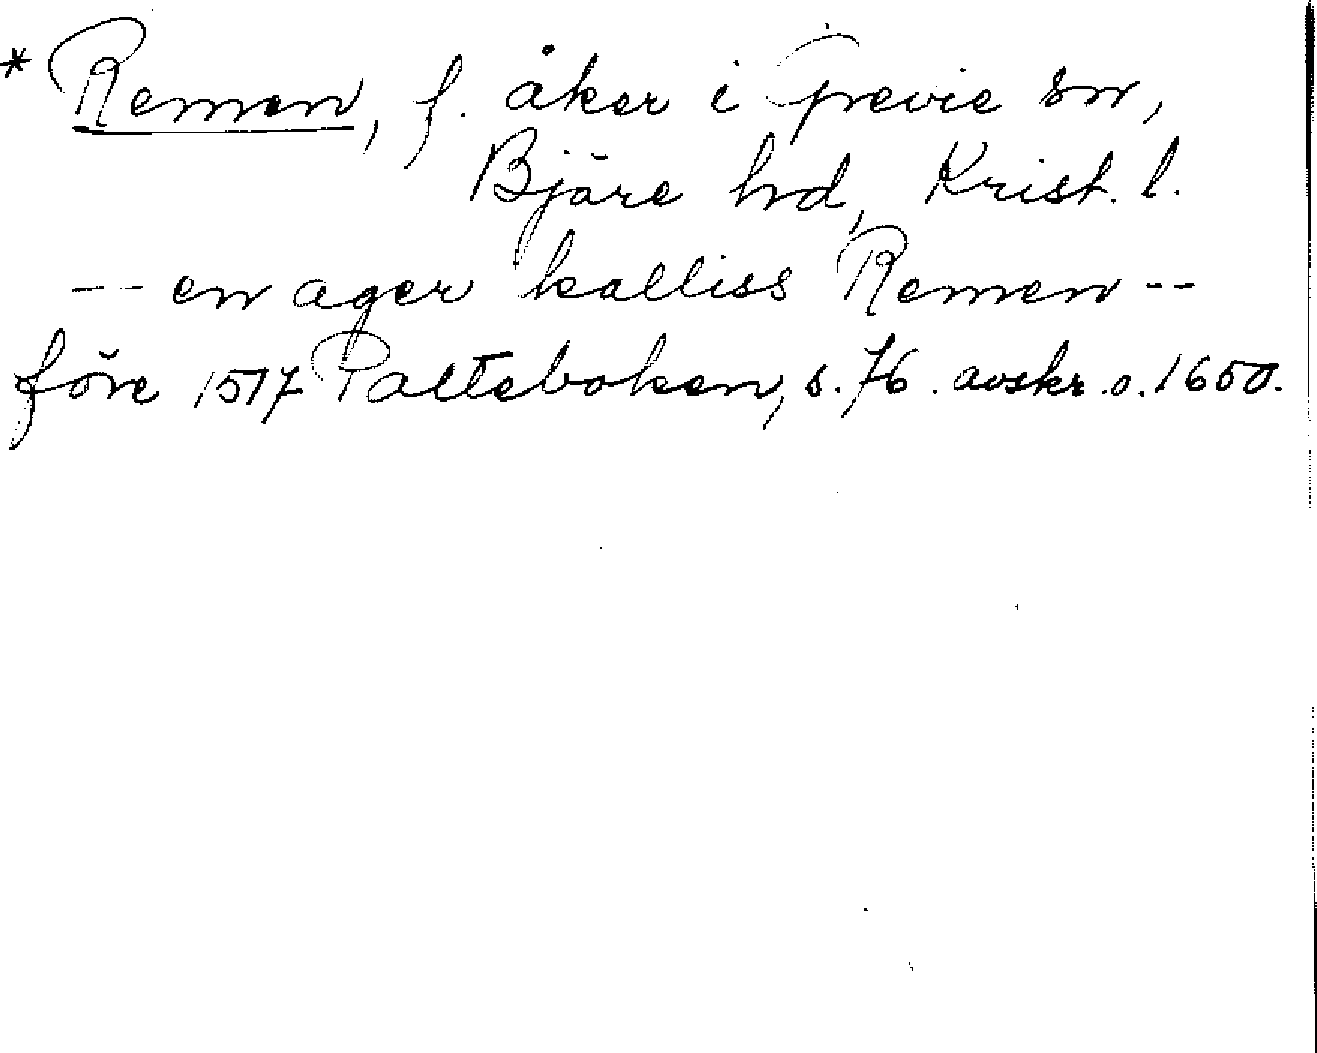 * Remen, f. åker i Grevie sn,
Bjäre hd, Krist. l.
-- en ager kalliss Remen --
före 1517 Palteboken, s. 76. avskr. o. 1650.